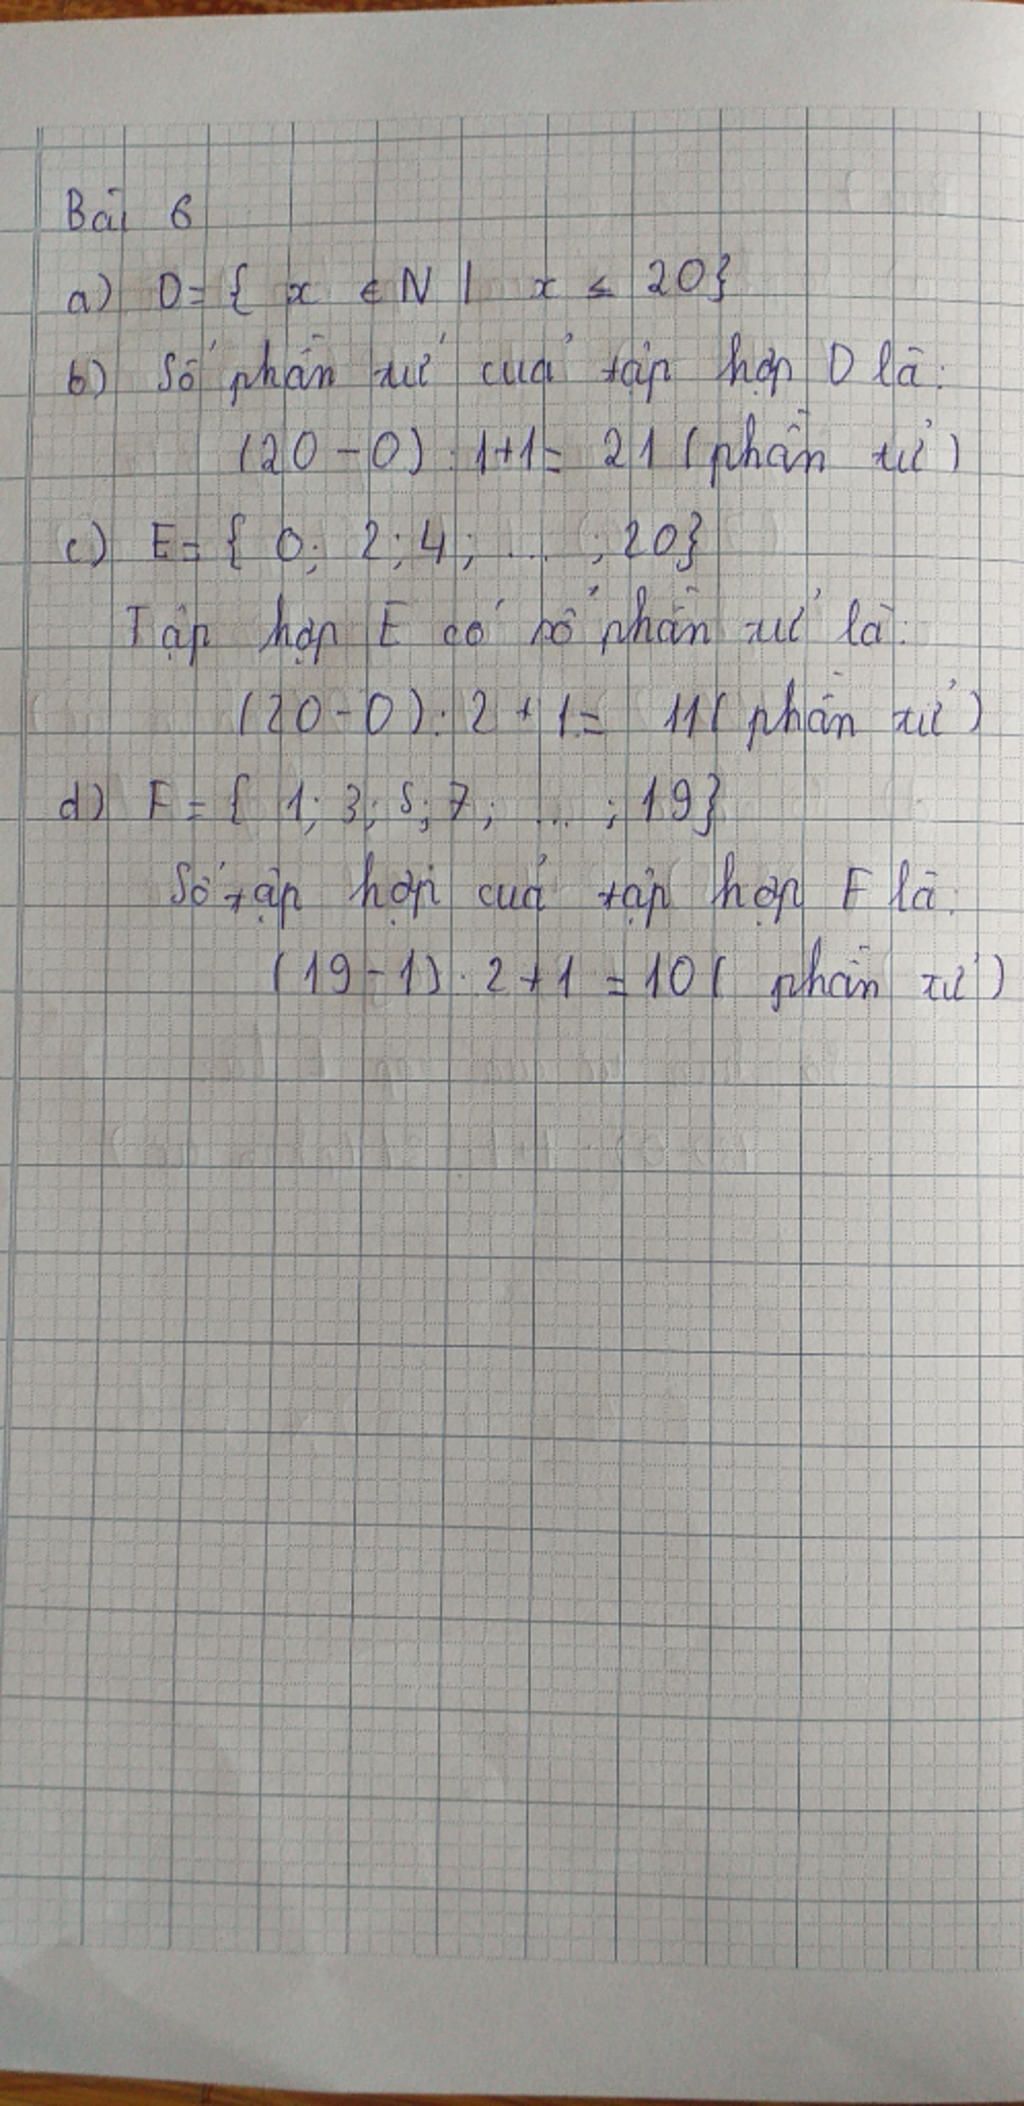 Bài 6
a) D= { x ∈ N | x ≤ 20}
b) Số phần tử của tập hợp D là:
(20 - 0) : 1+1= 21 (phần tử)
c) E= { 0; 2; 4; ... ; 20}
Tập hợp E có số phần tử là:
(20-0) : 2 + 1= 11( phần tử)
d) F= { 1; 3; 5; 7; ... ; 19}
Số tập hợp của tập hợp F là:
(19-1) : 2+1 =10( phần tử)